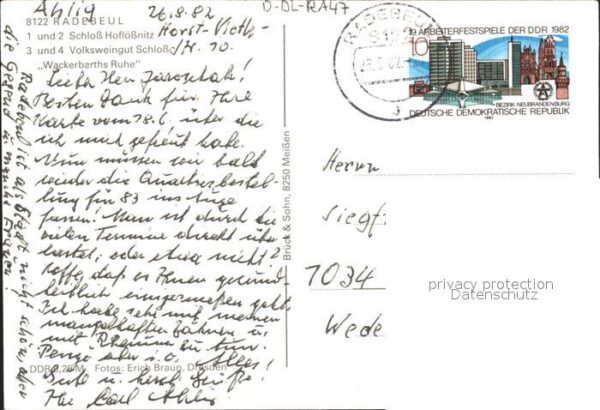 Ahlig
26.8.82
D-DL-RA47
8122 RADEBEUL
1 und 2 Schloß Hoflößnitz
3 und 4 Volksweingut Schloß
„Wackerbarths Ruhe"
Horst-Vieth-
Str. 10
Lieber Herr
Besten Dank für Ihre
Karte vom 18.6. über die
ich mich gefreut habe.
Nun müssen wir bald
wieder die Quartiersbestel-
lung für 83 ins Auge
fassen! Man ist durch die
vielen Termine direkt über-
lastet; oder etwa nicht?
Hoffe, daß es Ihnen gesund-
heitlich einigermaßen geht.
Ich habe sehr mit meinen
mangelhaften Zähnen u.
mit Rheuma zu tun.
aber i.O. Alles
Gute u. herzl. Grüße!
Ihr Carl Ahlig
Radebeul ist als Stadt nicht schön, aber
die Gegend u. manche Frauen!
DDR
Fotos: Erich Braun, Dresden
Brück & Sohn, 8250 Meißen
RADEBEUL
8122
19. ARBEITERFESTSPIELE DER DDR 1982
10
BEZIRK NEUBRANDENBURG
DEUTSCHE DEMOKRATISCHE REPUBLIK
1982
Herrn
Siegf
7034
Wede
privacy protection
Datenschutz